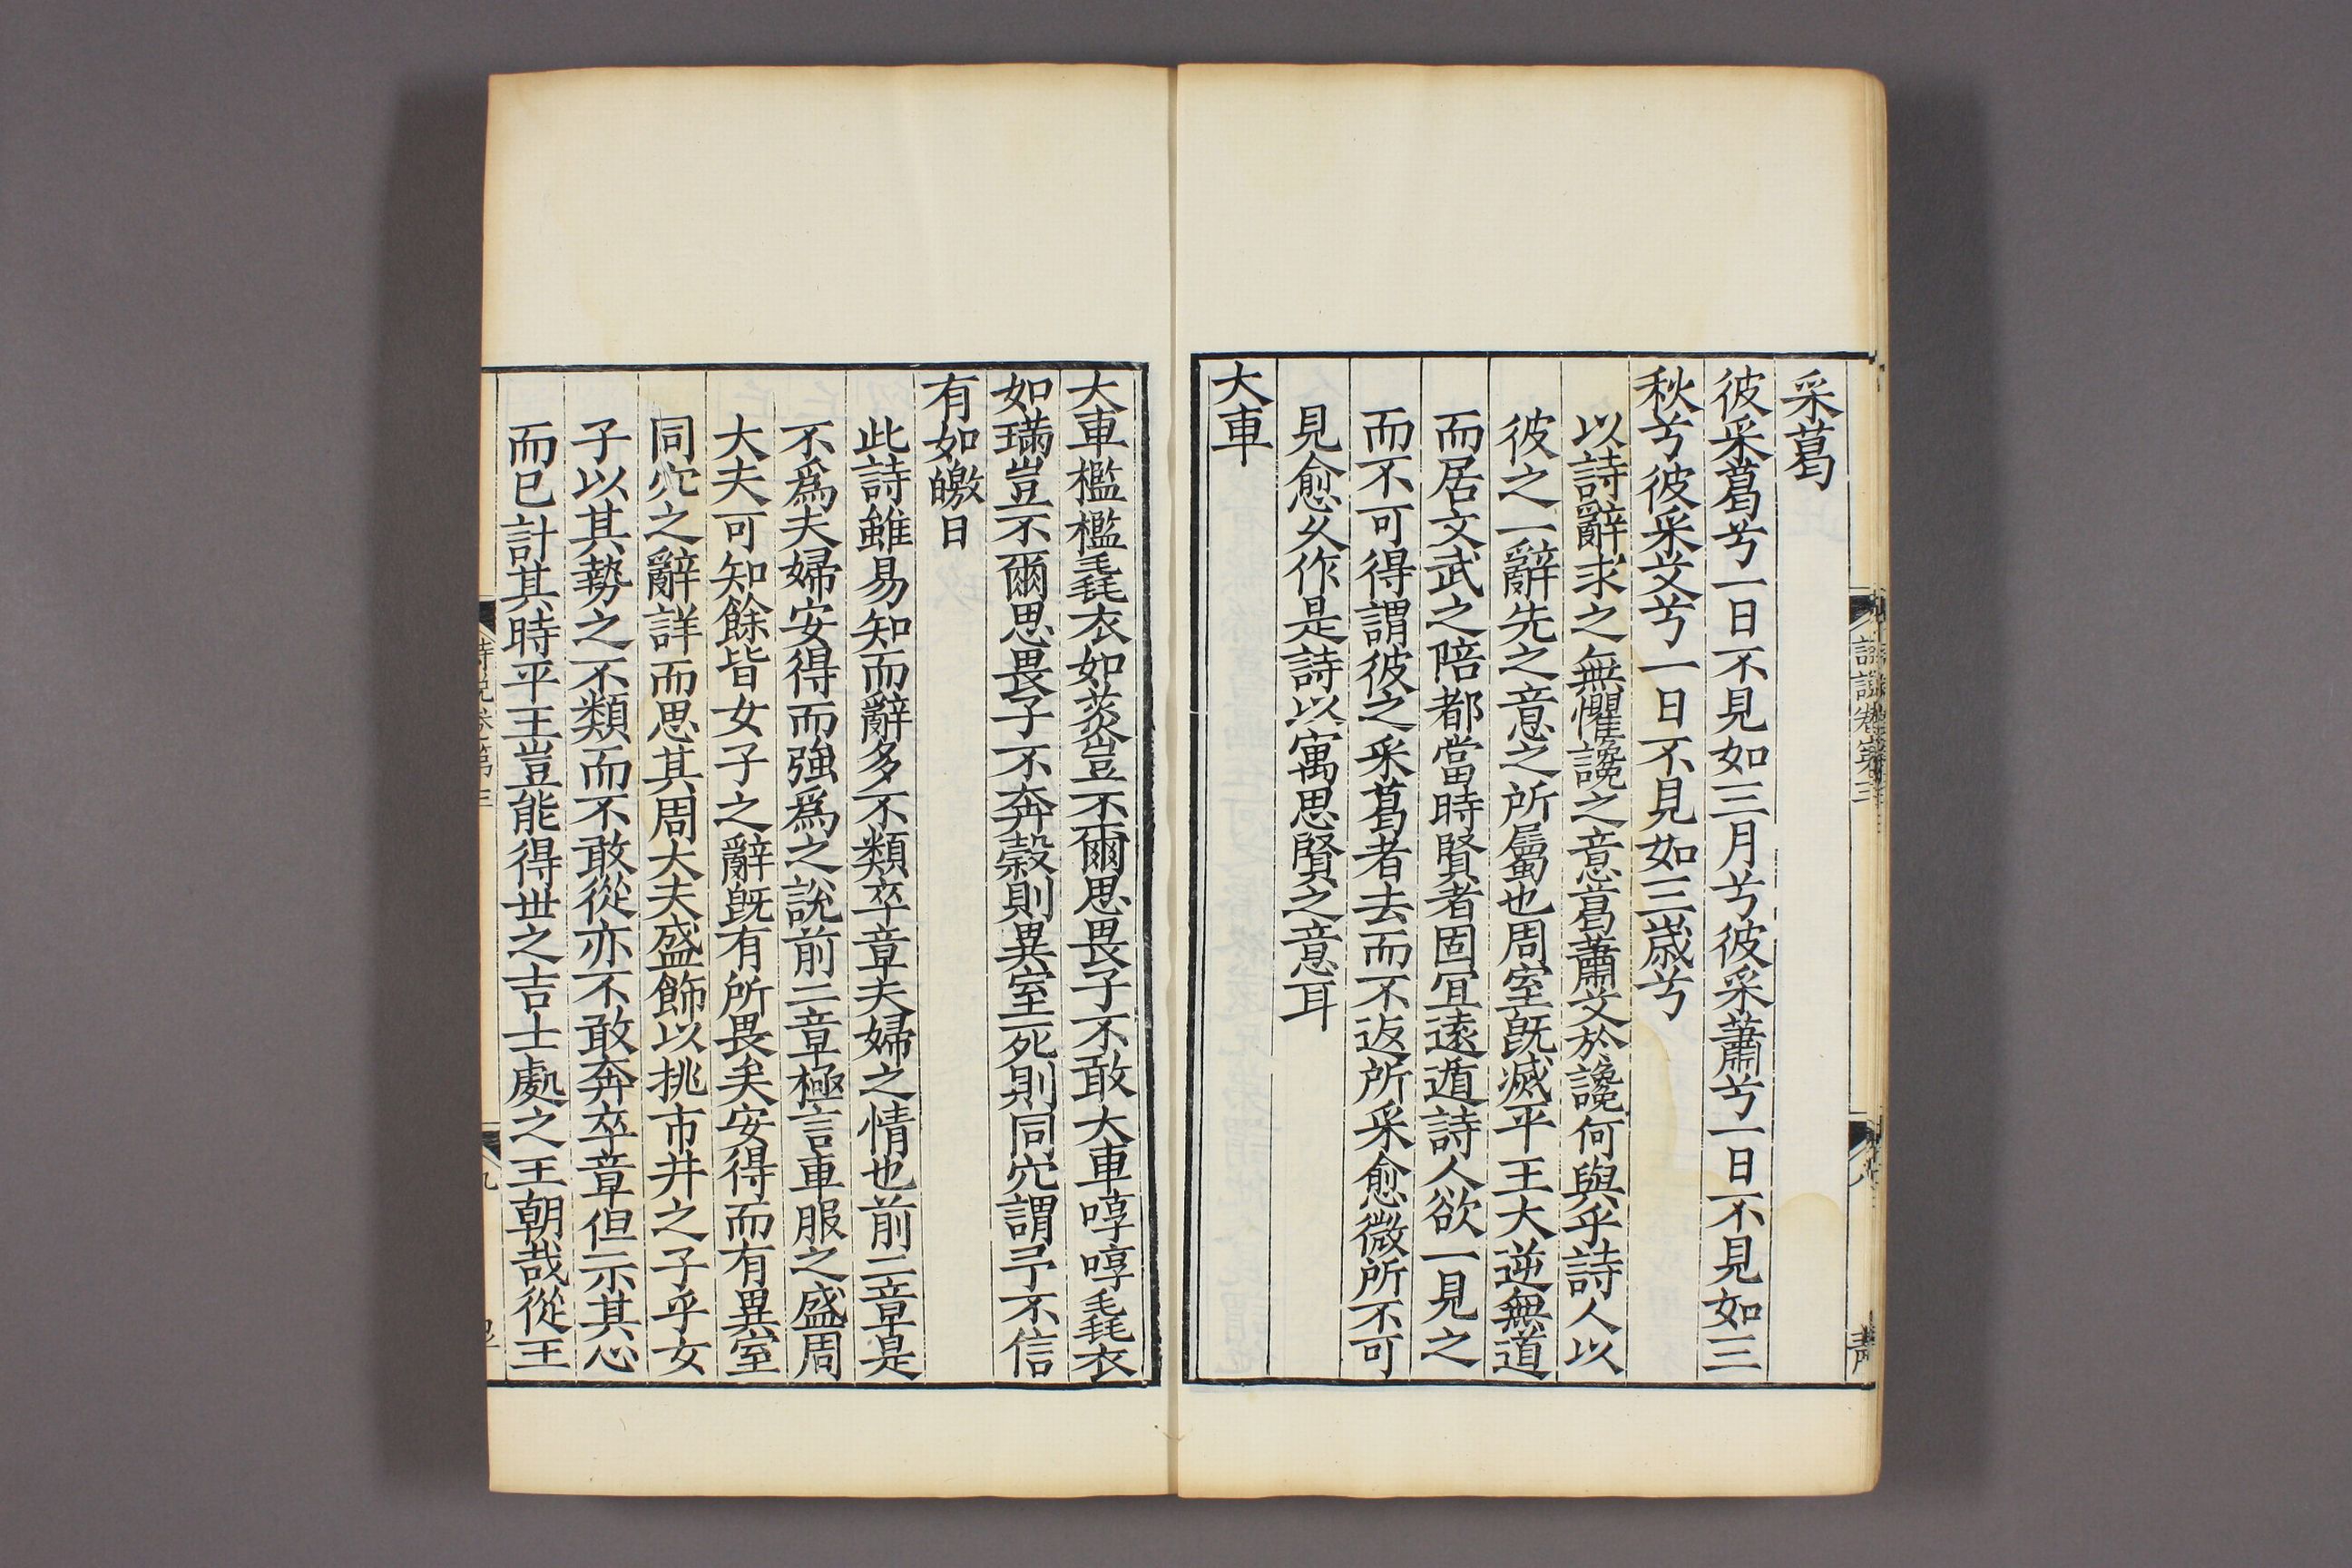 采葛
彼采葛兮一日不見如三月兮彼采蕭兮一日不見如三
秋兮彼采艾兮一日不見如三歲兮
以詩辭求之無懼讒之意葛蕭艾於讒何與乎詩人以
彼之一辭先之意之所屬也周室旣滅平王大逆無道
而居文武之陪都當時賢者固冝遠遁詩人欲一見之
而不可得謂彼之采葛者去而不返所采愈微所不可
見愈久作是詩以寓思賢之意耳
大車
大車檻檻毳衣如菼豈不爾思畏子不敢大車啍啍毳衣
如璊豈不爾思畏子不奔穀則異室死則同穴謂予不信
有如皦日
此詩雖易知而辭多不類卒章夫婦之情也前二章是
不爲夫婦安得而強爲之說前二章極言車服之盛周
大夫可知餘皆女子之辭旣有所畏矣安得而有異室
同穴之辭詳而思其周大夫盛飾以挑市井之子乎女
子以其勢之不類而不敢從亦不敢奔卒章但示其心
而已計其時平王豈能得世之吉士處之王朝哉從王
詩說卷第三
九